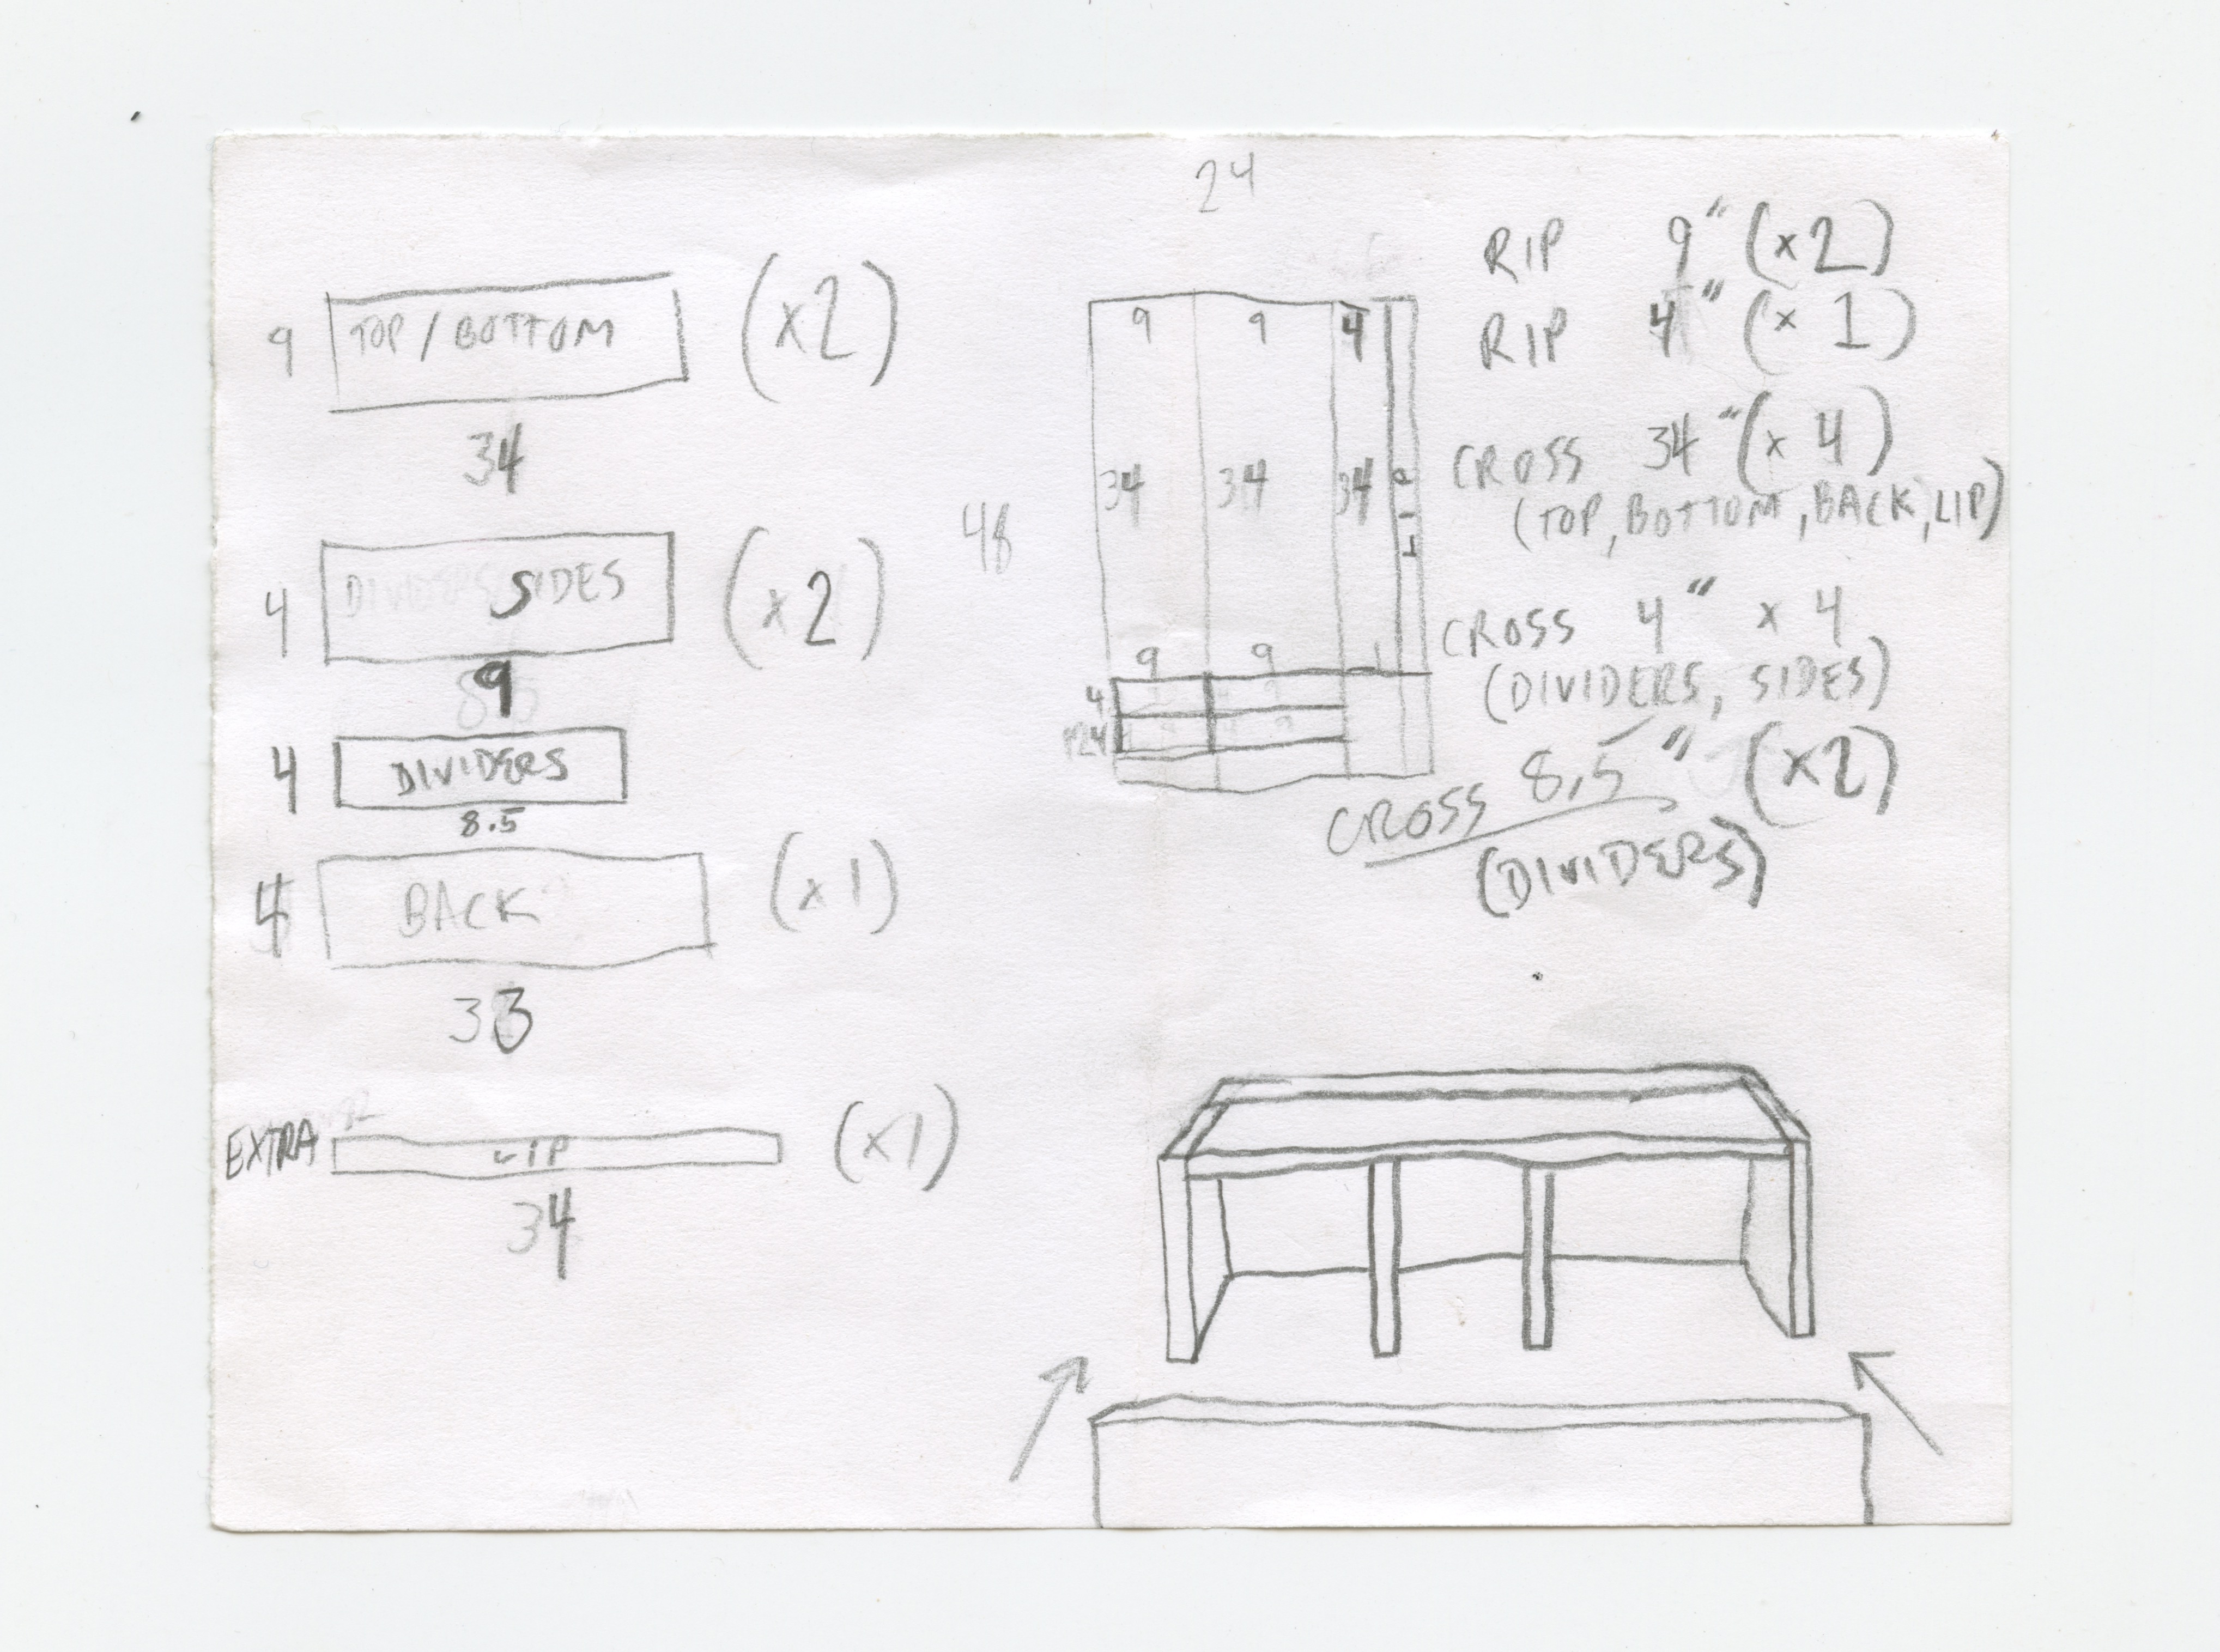 9 TOP / BOTTOM (x2)
34
4 DIVIDERS SIDES (x2)
9
4 DIVIDERS
8.5
4 BACK (x1)
33
EXTRA LIP (x1)
34
24
48
9 9 4
34 34 34 LIP
9 9
4
RIP 9" (x2)
RIP 4" (x1)
CROSS 34" (x4)
(TOP, BOTTOM, BACK, LIP)
CROSS 4" x 4
(DIVIDERS, SIDES)
CROSS 8.5" (x2)
(DIVIDERS)